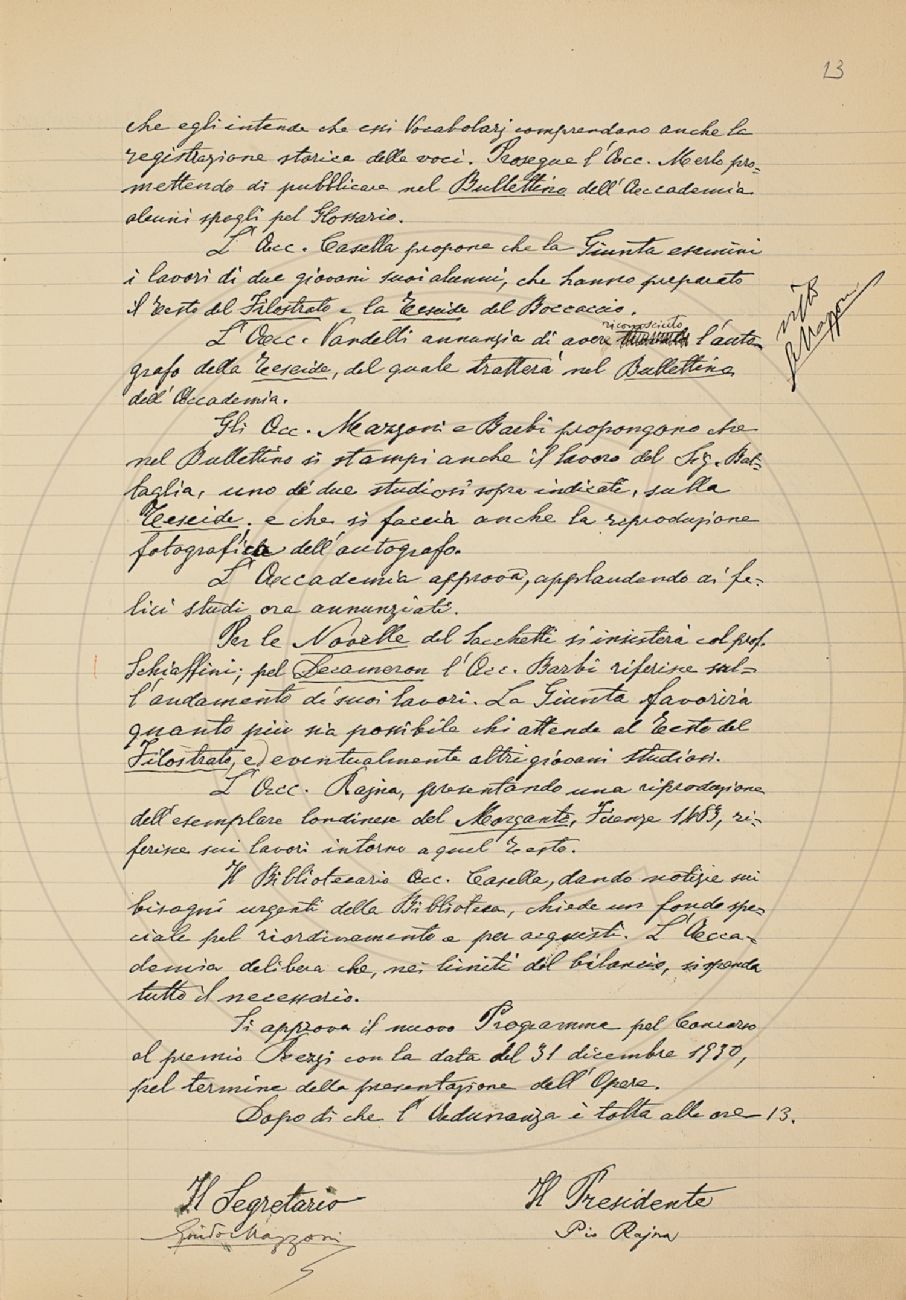 13
che egli intende che essi Vocabolarj comprendano anche la
registrazione storica delle voci. Prosegue l'Acc. Merlo pro=
mettendo di pubblicare nel Bullettino dell'Accademia
alcuni spogli pel Glossario.
L'Acc. Casella propone che la Giunta esamini
i lavori di due giovani suoi alunni, che hanno preparato
il Testo del Filostrato e la Teseide del Boccaccio.
riconosciuto
L'Acc. Vandelli annunzia di avere l'auto=
grafo della Teseide, del quale tratterà nel Bullettino
dell'Accademia.
visto
G Mazzoni
Gli Acc. Mazzoni e Barbi propongono che
nel Bullettino si stampi anche il lavoro del Sig. Bat=
taglia, uno de' due studiosi sopra indicati, sulla
Teseide, e che si faccia anche la riproduzione
fotografica dell'autografo.
L'Accademia approva, applaudendo ai fe=
lici studi ora annunziati.
Per le Novelle del Sacchetti si insisterà col prof.
Schiaffini; pel Decameron l'Acc. Barbi riferisce sul=
l'andamento di' suoi lavori. La Giunta favorirà
quanto più sia possibile chi attende al Testo del
Filostrato, ed eventualmente altri giovani studiosi.
L'Acc. Rajna, presentando una riproduzione
dell'esemplare londinese del Morgante, Firenze 1483, ri=
ferisce sui lavori intorno a quel Testo.
Il Bibliotecario Acc. Casella, dando notizie sui
bisogni urgenti della Biblioteca, chiede un fondo spe=
ciale pel riordinamento e per acquisti. L'Acca=
demia delibera che, nei limiti del bilancio, si spenda
tutto il necessario.
Si approva il nuovo Programma pel Concorso
al premio Rezzi con la data del 31 dicembre 1930,
pel termine della presentazione dell'Opere.
Dopo di che l'Adunanza è tolta alle ore 13.
Il Segretario
Il Presidente
Guido Mazzoni
Pio Rajna